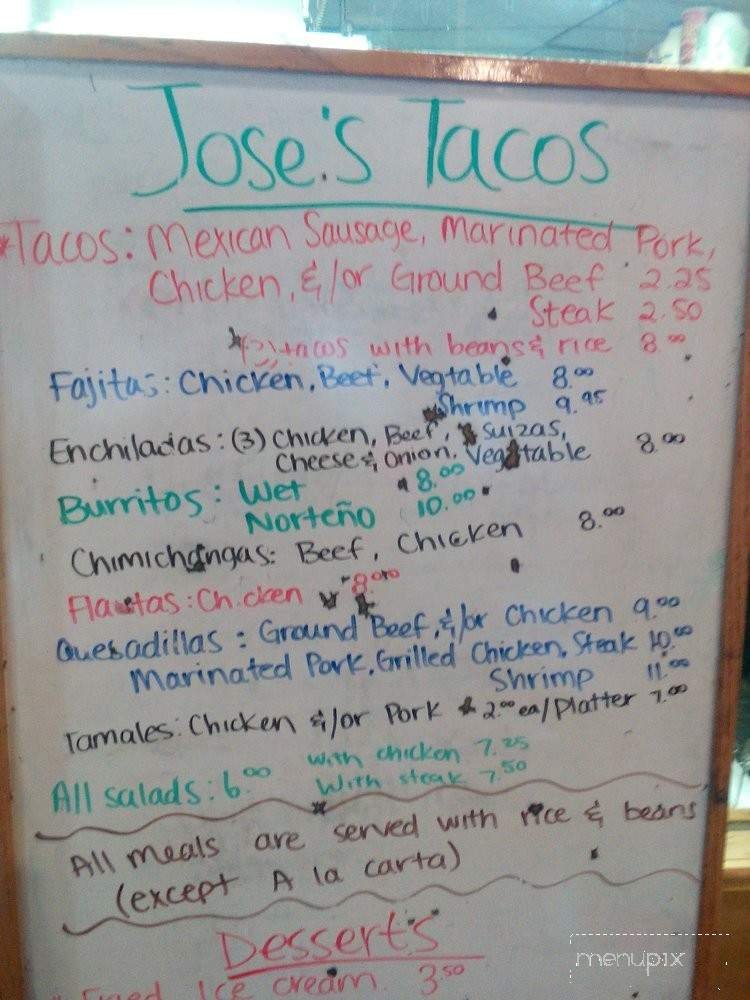 Jose's Tacos
*Tacos: Mexican Sausage, Marinated Pork,
Chicken, &/or Ground Beef 2.25
Steak 2.50
tacos with beans & rice 8.00
Fajitas: Chicken, Beef, Vegtable 8.00
Shrimp 9.95
Enchiladas: (3) Chicken, Beef, Suizas,
Cheese & Onion, Vegatable 8.00
Burritos: Wet 8.00
Norteño 10.00
Chimichangas: Beef, Chicken 8.00
Flautas: Chicken 8.00
Quesadillas: Ground Beef, &/or Chicken 9.00
Marinated Pork, Grilled Chicken, Steak 10.00
Shrimp 11.00
Tamales: Chicken &/or Pork 2.00 ea/Platter 7.00
All salads: 6.00 with chicken 7.25
With steak 7.50
All meals are served with rice & beans
(except A la carta)
Desserts
Fried Ice cream 3.50
menupix